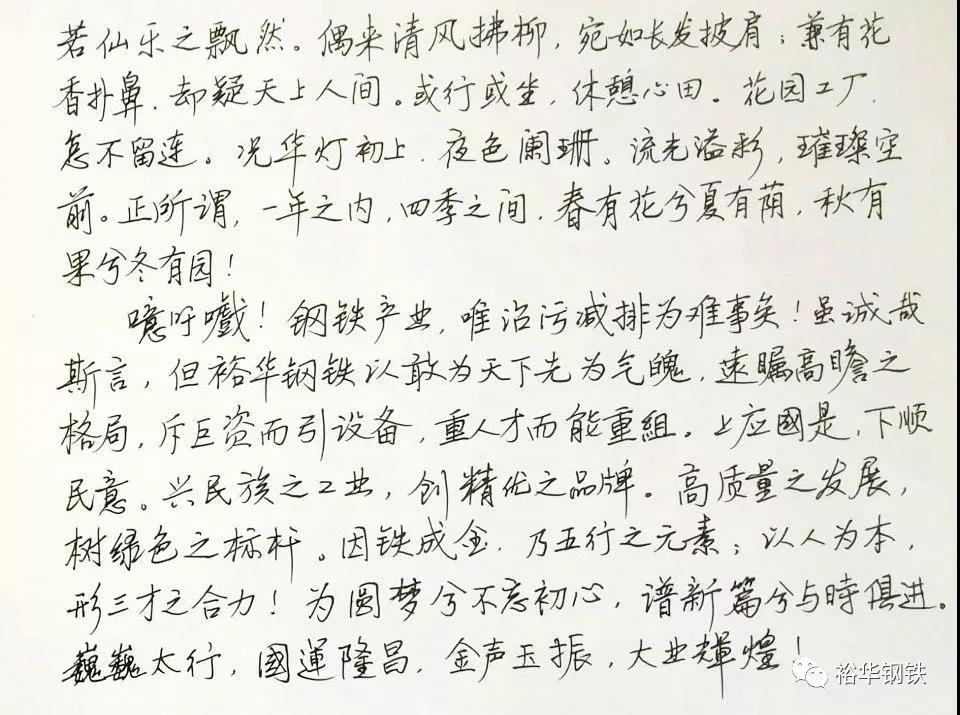 若仙乐之飘然。偶来清风拂柳，宛如长发披肩；兼有花
香扑鼻，却疑天上人间。或行或坐，休憩心田。花园工厂，
怎不留连。况华灯初上，夜色阑珊。流光溢彩，璀璨空
前。正所谓，一年之内，四季之间，春有花兮夏有荫，秋有
果兮冬有园！
噫吁戲！钢铁产业，唯治污减排为难事矣！虽诚哉
斯言，但裕华钢铁以敢为天下先为气魄，遠瞩高瞻之
格局，斥巨资而引设备，重人才而能重組。上应國是，下顺
民意。兴民族之工业，创精优之品牌。高质量之发展，
树绿色之标杆。因铁成金，乃五行之元素；以人为本，
形三才之合力！为圆梦兮不忘初心，谱新篇兮与時俱进。
巍巍太行，國運隆昌，金声玉振，大业輝煌！
裕华钢铁